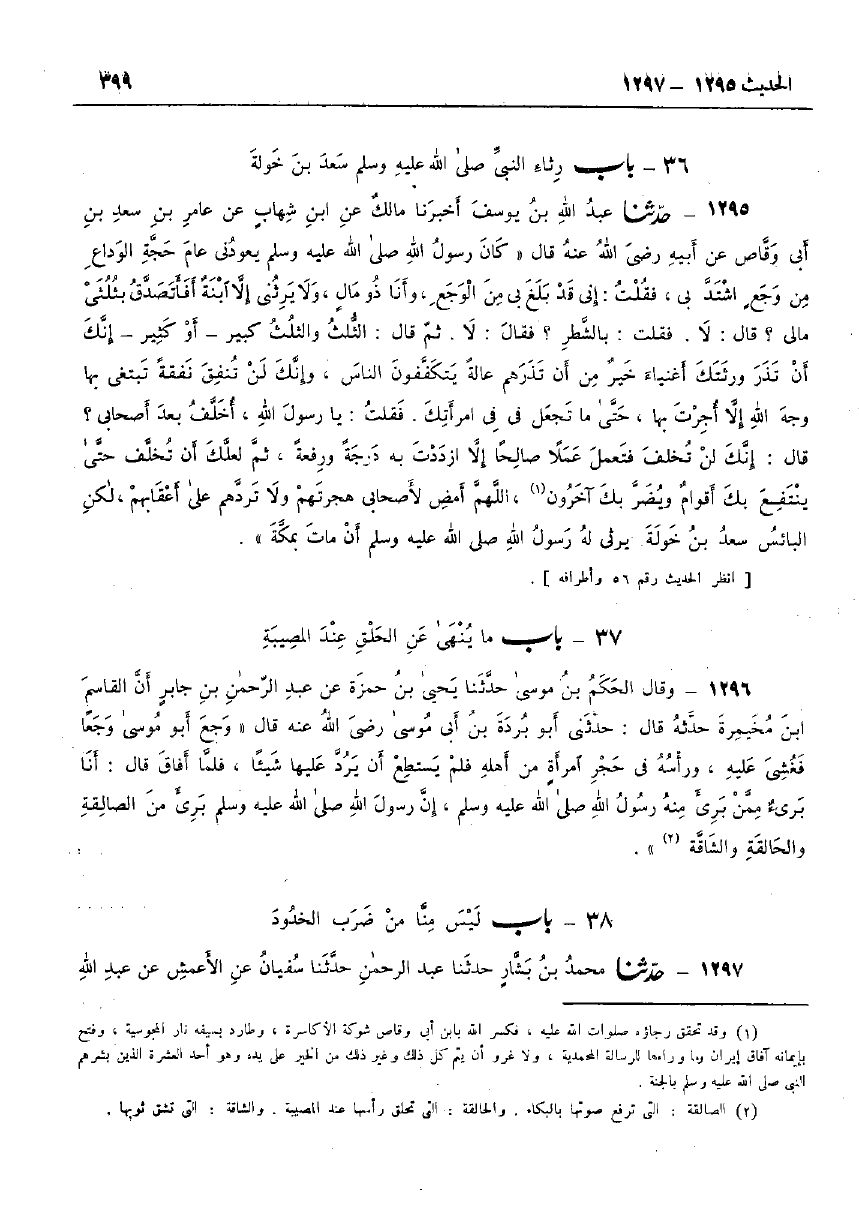 الحديث ١٢٩٥ – ١٢٩٧
٣٩٩
٣٦ – باب رِثاءِ النبيِّ صلىٰ اللهُ عليهِ وسلم سَعدَ بنَ خَولةَ
١٢٩٥ – حدّثنا عبدُ اللهِ بنُ يوسفَ أخبرَنا مالكٌ عنِ ابنِ شِهابٍ عن عامرِ بنِ سعدِ بنِ
أبى وَقَّاص عن أبيهِ رضىَ اللهُ عنهُ قال « كانَ رسولُ اللهِ صلىٰ اللهُ عليه وسلم يعودُنى عامَ حَجَّةِ الوَداعِ
مِن وَجَعٍ اشْتَدَّ بى ، فقُلْتُ : إنى قَدْ بَلَغَ بى مِنَ الْوَجَعِ ، وأنَا ذُو مَالٍ ، وَلَا يَرِثُنى إلَّا ابْنَةٌ أفَأتَصَدَّقُ بثُلُثَىْ
مالى ؟ قال : لَا . فقلت : بالشَّطرِ ؟ فقالَ : لَا . ثمّ قال : الثُّلثُ والثلثُ كبير – أوْ كَثِير – إنَّكَ
أنْ تَذَرَ ورثَتَكَ أغنياءَ خَيرٌ مِن أن تَذَرَهم عالةً يَتكَفَّفونَ الناسَ ، وإنَّكَ لَنْ تُنفِقَ نَفقةً تَبتغى بها
وجهَ اللهِ إلَّا أُجِرْتَ بها ، حَتَّىٰ ما تَجعَل فى فى امرأتِكَ . فَقلتُ : يا رسولَ اللهِ ، أُخَلَّفُ بعدَ أصحابى ؟
قال : إنَّكَ لنْ تُخلفَ فتَعملَ عَمَلًا صالِحًا إلَّا ازدَدْتَ به دَرجَةً ورِفعةً ، ثمَّ لعلَّكَ أن تُخلَّف حتَّىٰ
يَنْتَفِعَ بكَ أقوامٌ ويُضَرَّ بكَ آخَرُون(١) ، اللَّهمَّ أمضِ لأصحابى هجرتَهمْ ولَا تَردَّهم علىٰ أعْقَابِهمْ ، لٰكنِ
البائسُ سعدُ بنُ خَولَةَ يرثى لهُ رَسولُ اللهِ صلى الله عليه وسلم أنْ ماتَ بمكَّةَ » .
[ انظر الحديث رقم ٥٦ وأطرافه ] .
٣٧ – باب ما يُنْهَىٰ عَنِ الحَلْقِ عِنْدَ المصِيبَةِ
١٢٩٦ – وقال الحَكَمُ بنُ موسىٰ حدَّثَنا يَحيىٰ بنُ حمزَة عن عبدِ الرّحمٰنِ بنِ جابرٍ أنَّ القاسمَ
ابنَ مُخَيمِرةَ حدَّثهُ قال : حدَّثَنى أبو بُردَةَ بنُ أبى مُوسىٰ رضىَ اللهُ عنه قال « وَجعَ أبو موسىٰ وَجَعًا
فَغُشِىَ عَليهِ ، ورأسُهُ فى حَجْرِ امرأةٍ من أهلهِ فلمْ يَستطِعْ أن يَرُدَّ عَليها شَيئًا ، فلمَّا أفاقَ قال : أنَا
بَرىءٌ مِمَّنْ بَرِئَ مِنهُ رسُولُ اللهِ صلىٰ اللهُ عليه وسلم ، إنَّ رسولَ اللهِ صلىٰ الله عليه وسلم بَرِئَ منَ الصالِقةِ
والحَالقَةِ والشَّاقَّة (٢) » .
٣٨ – باب لَيْسَ مِنَّا مَنْ ضَرَب الخدُودَ
١٢٩٧ – حدّثنا محمدُ بنُ بَشَّارٍ حدثَنا عبد الرحمٰنِ حدَّثَنا سُفيانُ عنِ الأَعمشِ عن عبدِ اللهِ
(١) وقد تحقق رجاؤه صلوات الله عليه ، فكسر الله بابن أبى وقاص شوكة الأكاسرة ، وطارد بسيفه نار المجوسية ، وفتح
بإيمانه آفاق إيران وما وراءها للرسالة المحمدية ، ولا غرو أن يتم كل ذلك وغير ذلك من الخير على يده وهو أحد العشرة الذين بشرهم
النبى صلى الله عليه وسلم بالجنة .
(٢) الصالقة : التى ترفع صوتها بالبكاء . والحالقة : التى تحلق رأسها عند المصيبة . والشاقة : التى تشق ثوبها .